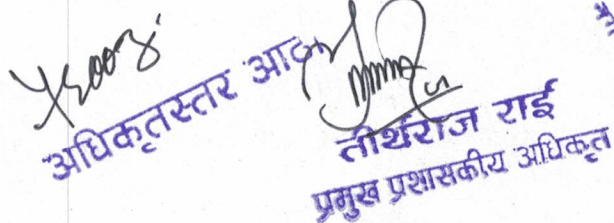 अधिकृतस्तर आठौं
तीर्थराज राई
प्रमुख प्रशासकीय अधिकृत